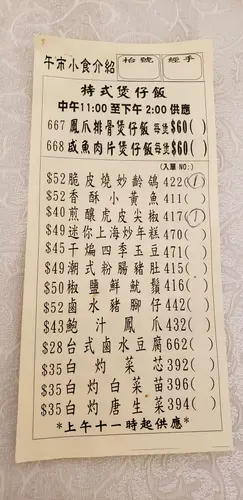 午市小食介紹 枱號 經手
特式煲仔飯
中午11:00 至下午 2:00 供應
667 鳳爪排骨煲仔飯每煲$60( )
668 咸魚肉片煲仔飯每煲$60( )
(入單 NO:)
$52 脆皮燒妙齡鴿 422(1)
$52 香酥小黃魚 411( )
$40 煎釀虎皮尖椒 417(1)
$49 迷你上海炒年糕 470( )
$45 干煸四季玉豆 471( )
$49 潮式粉腸豬肚 415( )
$50 椒鹽鮮魷鬚 416( )
$52 鹵水豬腳仔 442( )
$43 鮑汁鳳爪 432( )
$28 台式鹵水豆腐 662( )
$35 白灼菜芯 392( )
$35 白灼白菜苗 396( )
$35 白灼唐生菜 394( )
*上午十一時起供應*